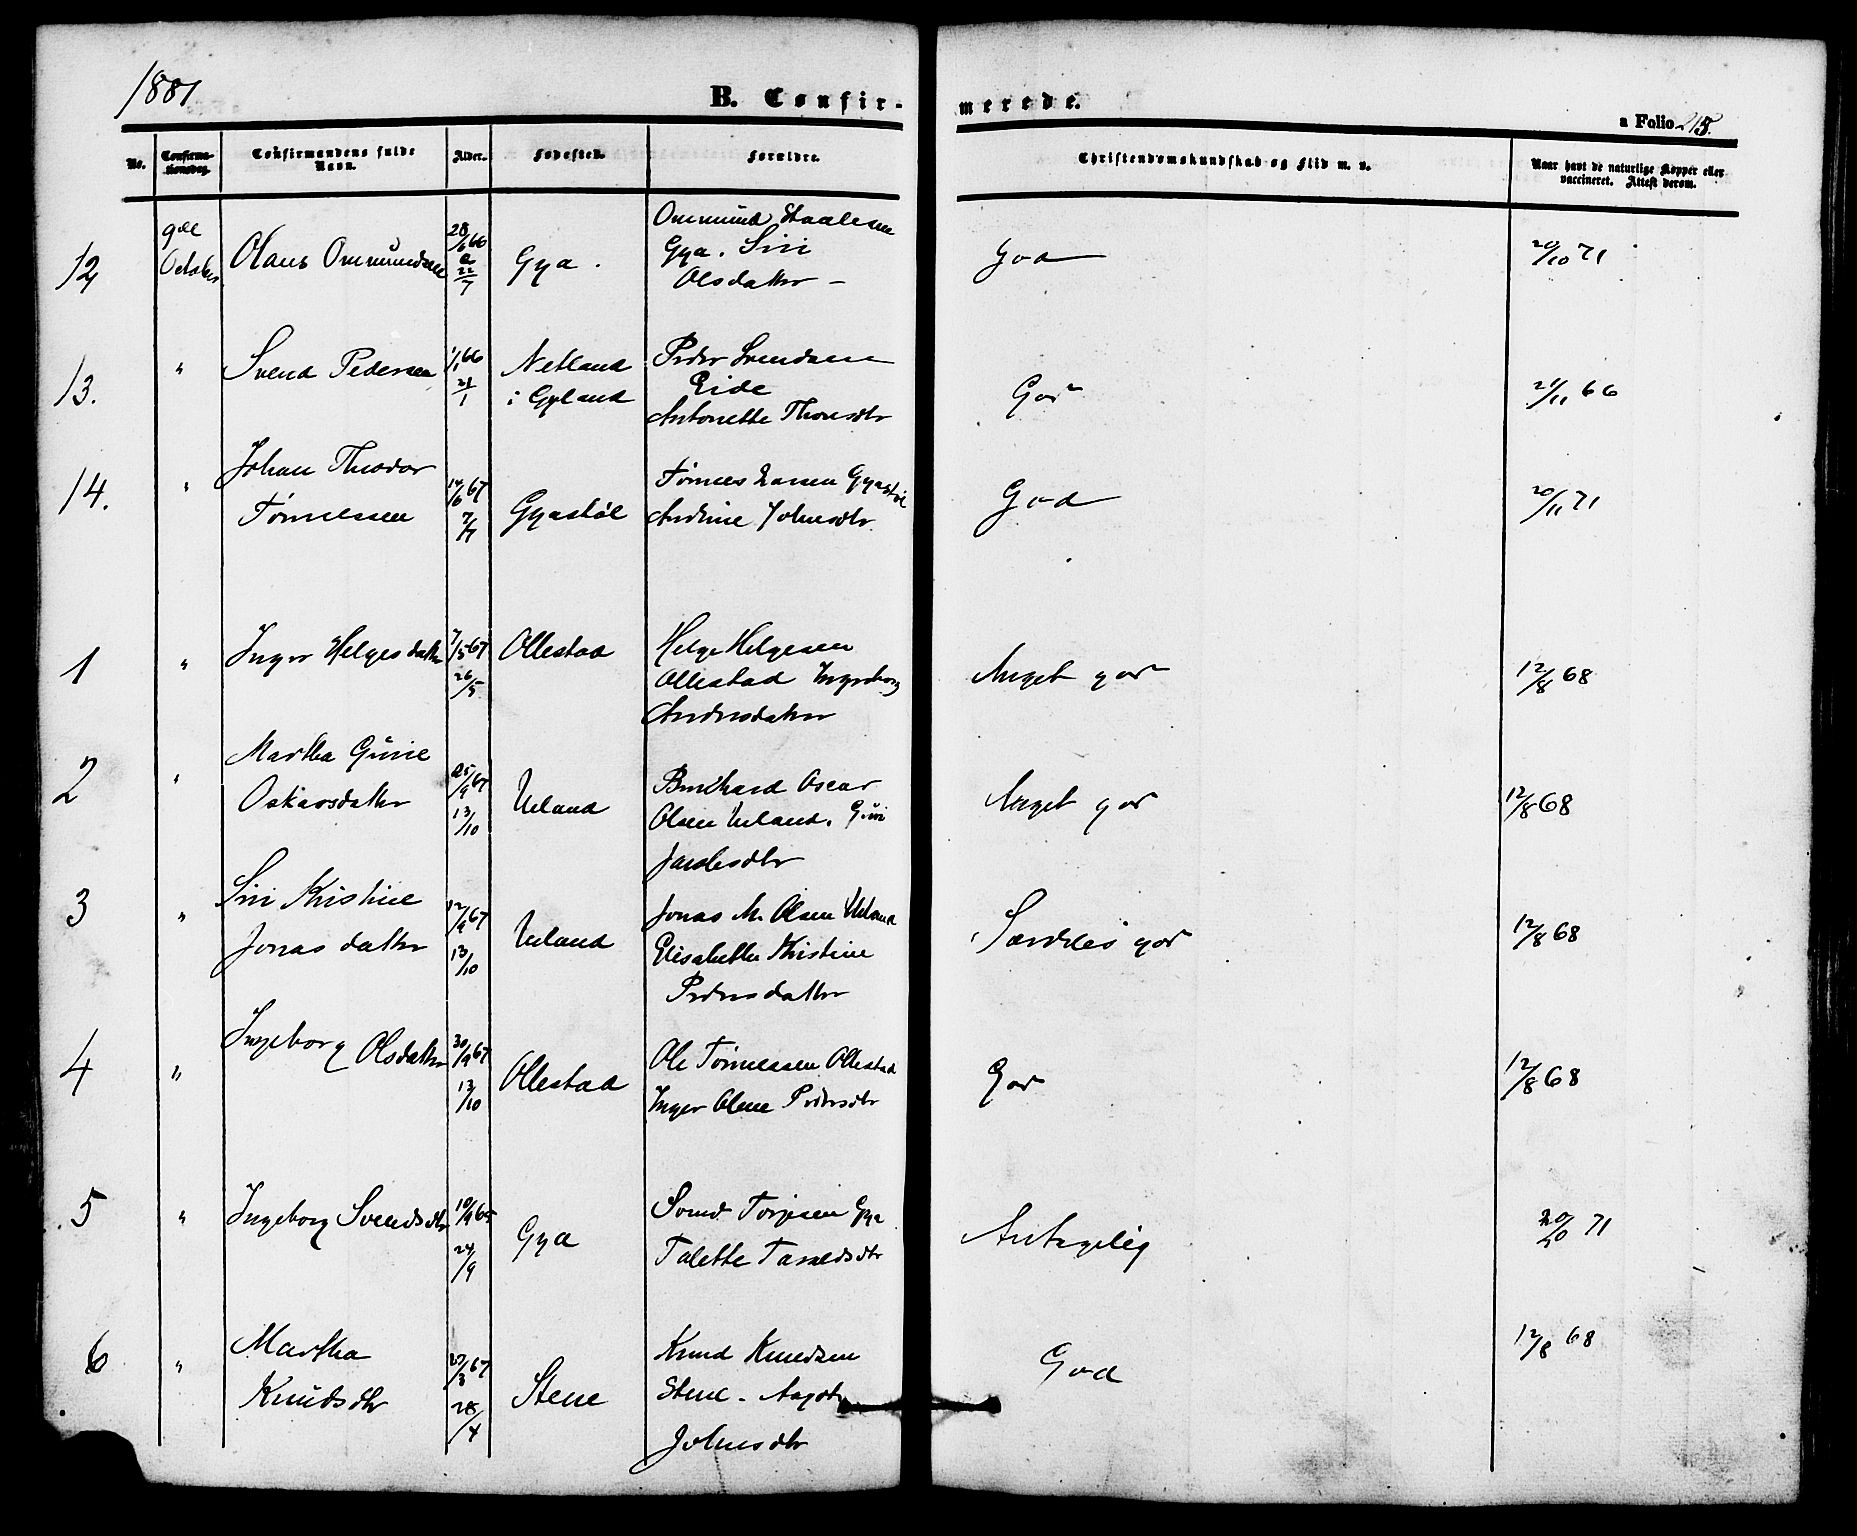 1881
B. Confir-
merede.
a Folio 215.
No.
Confirma-
tionsdag.
Confirmandens fulde
Navn.
Alder.
Fødested.
Forældre.
Christendomskundskab og Flid m. v.
Naar havt de naturlige Kopper eller
vaccineret. Attest derom.
12 9de October Olaus Ommundsen 28/6 66 22/7 Gya. Ommund Staalesen
Gya. Siri
Olsdatter - God 20/10 71
13. " Svend Pedersen 1/1 66 21/1 Netland
i Gyland Peder Svendsen
Eide
Antonette Thorsdtr God 21/11 66
14. " Johan Theodor
Tønnessen 14/6 67 7/7 Gyastøl Tønnes Larsen Gyastøl
Andrine Johnsdtr God 20/11 71
1 " Inger Helgesdatter 7/5 67 26/5 Ollestad Helge Helgesen
Ollestad Ingeborg
Andersdatter Meget god 12/8 68
2 " Martha Gurine
Oskarsdatter 25/9 67 13/10 Ueland Bernhard Oscar
Olsen Ueland. Guri
Jacobsdtr Meget god 12/8 68
3 " Siri Kristine
Jonasdatter 12/9 67 13/10 Ueland Jonas M. Olsen Ueland
Elisabethe Kristine
Pedersdatter Særdeles god 12/8 68
4 " Ingeborg Olsdatter 30/9 67 13/10 Ollestad Ole Tønnessen Ollestad
Inger Olene Pedersdtr God 12/8 68
5 " Ingeborg Svendsdtr 10/9 65 24/9 Gya Svend Torjesen Gya
Talette Taraldsdtr Antagelig 20/10 71
6 " Martha
Knudsdtr 27/3 67 28/4 Stene Knud Knudsen
Stene. Aagot
Johnsdtr God 12/8 68